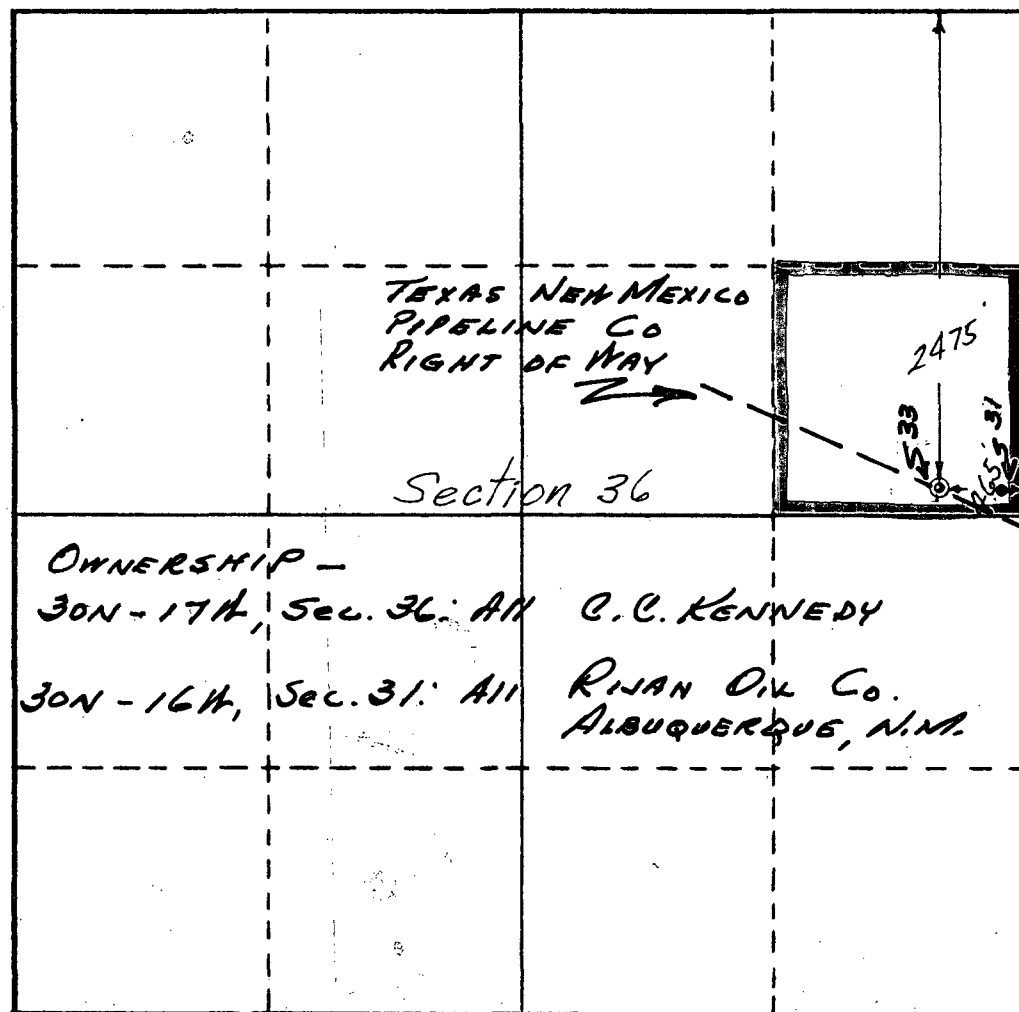 TEXAS NEW MEXICO
PIPELINE CO
RIGHT OF WAY
2475'
S 33
S 31
Section 36
OWNERSHIP -
30N - 17W, Sec. 36: All C.C. KENNEDY
30N - 16W, Sec. 31: All
OIL CO.
ALBUQUERQUE, N.M.